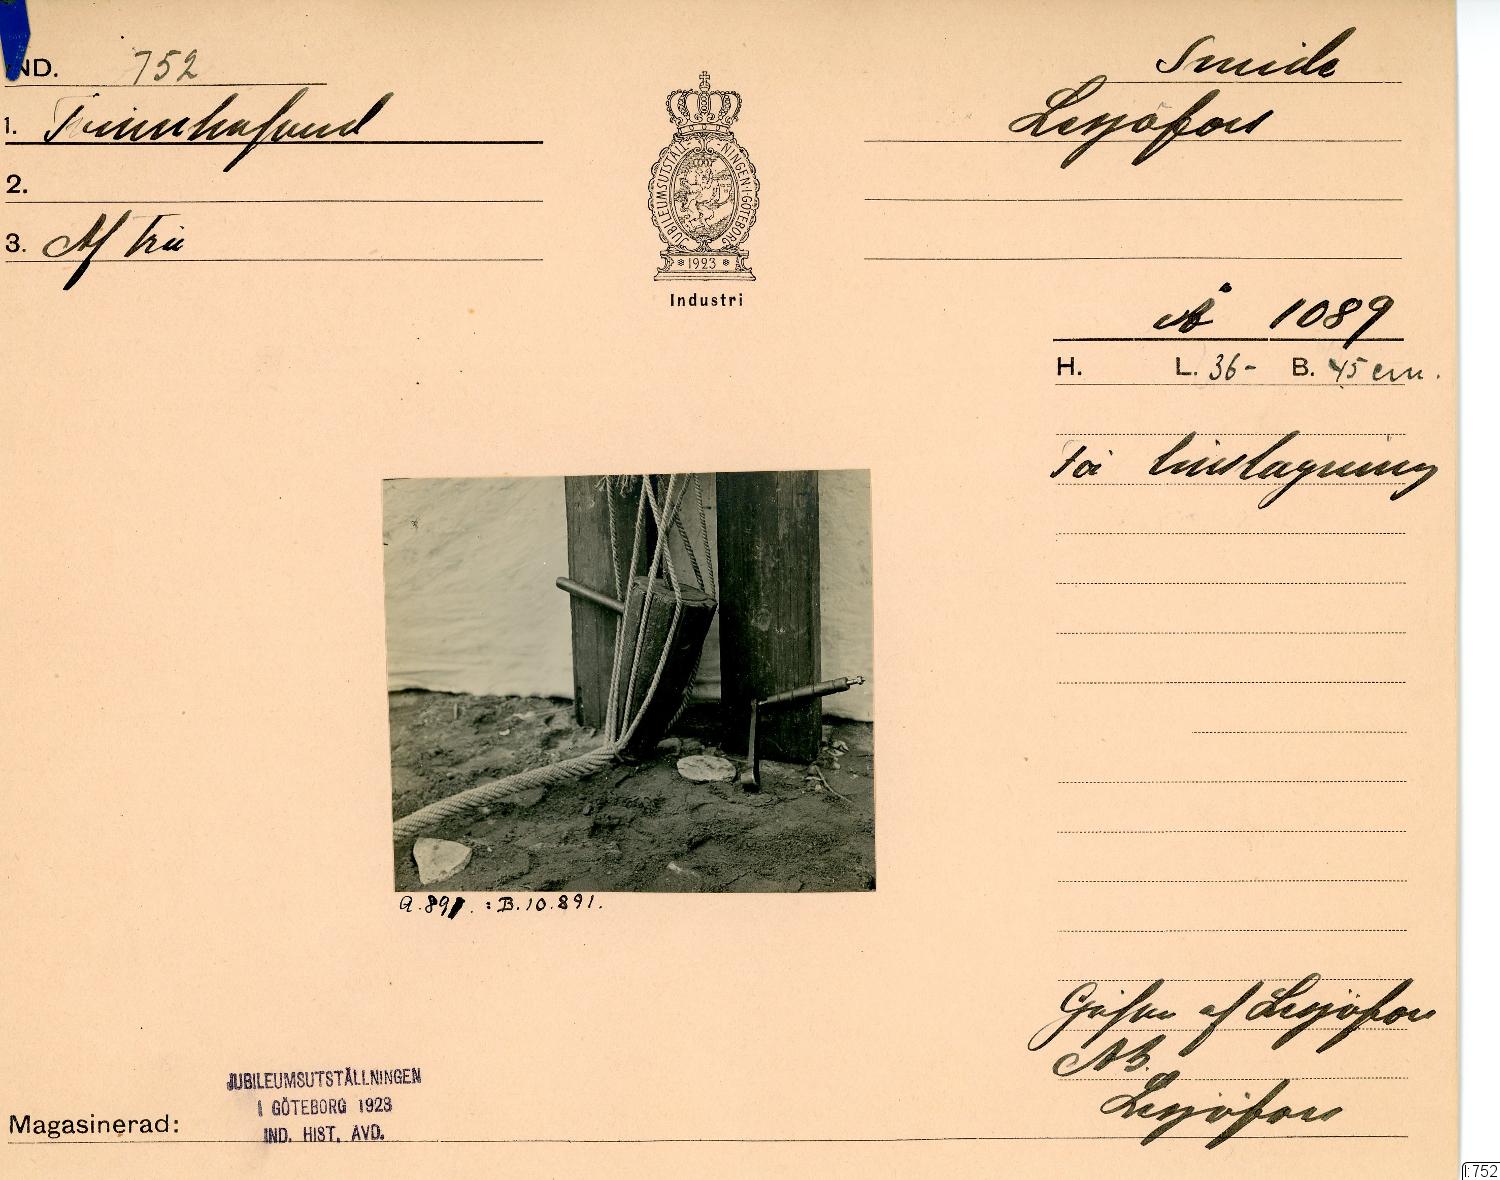 IND. 752
1. Trinnhufvud
2.
3. Af trä
JUBILEUMSUTSTÄLLNINGEN·I·GÖTEBORG
1923
Industri
Smide
Lesjöfors
Å 1089
H. L. 36- B. 45 cm.
För linslagning
a.891. : B.10.891.
Gifven af Lesjöfors
AB.
Lesjöfors
JUBILEUMSUTSTÄLLNINGEN
I GÖTEBORG 1923
IND. HIST. AVD.
Magasinerad:
I:752